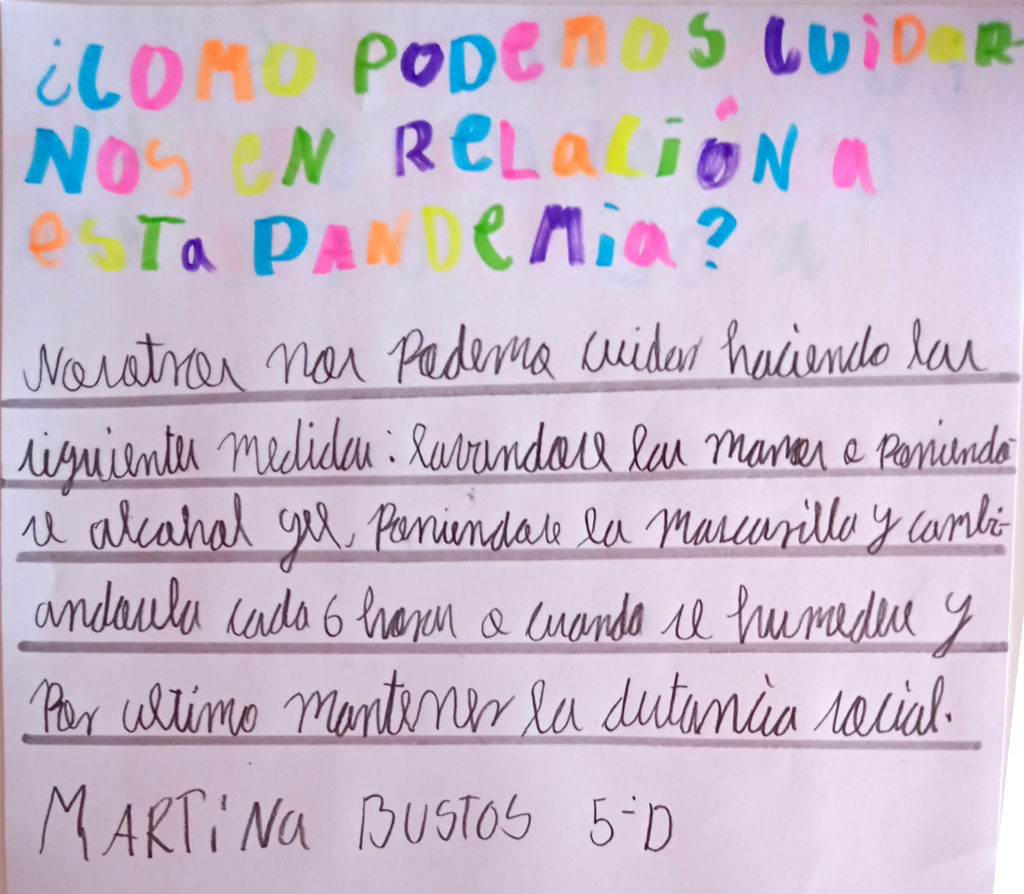 ¿COMO PODEMOS CUIDAR-
NOS EN RELACIÓN A
ESTA PANDEMIA?
Nosotros nos Podemo cuidar haciendo las
siguientes medidas: lavandose las manos o poniendo
se alcohol gel, Poniendose la mascarilla y cambi-
andosela cada 6 horas o cuando se humedece y
Por ultimo mantener la distancia social.
MARTINA BUSTOS 5-D